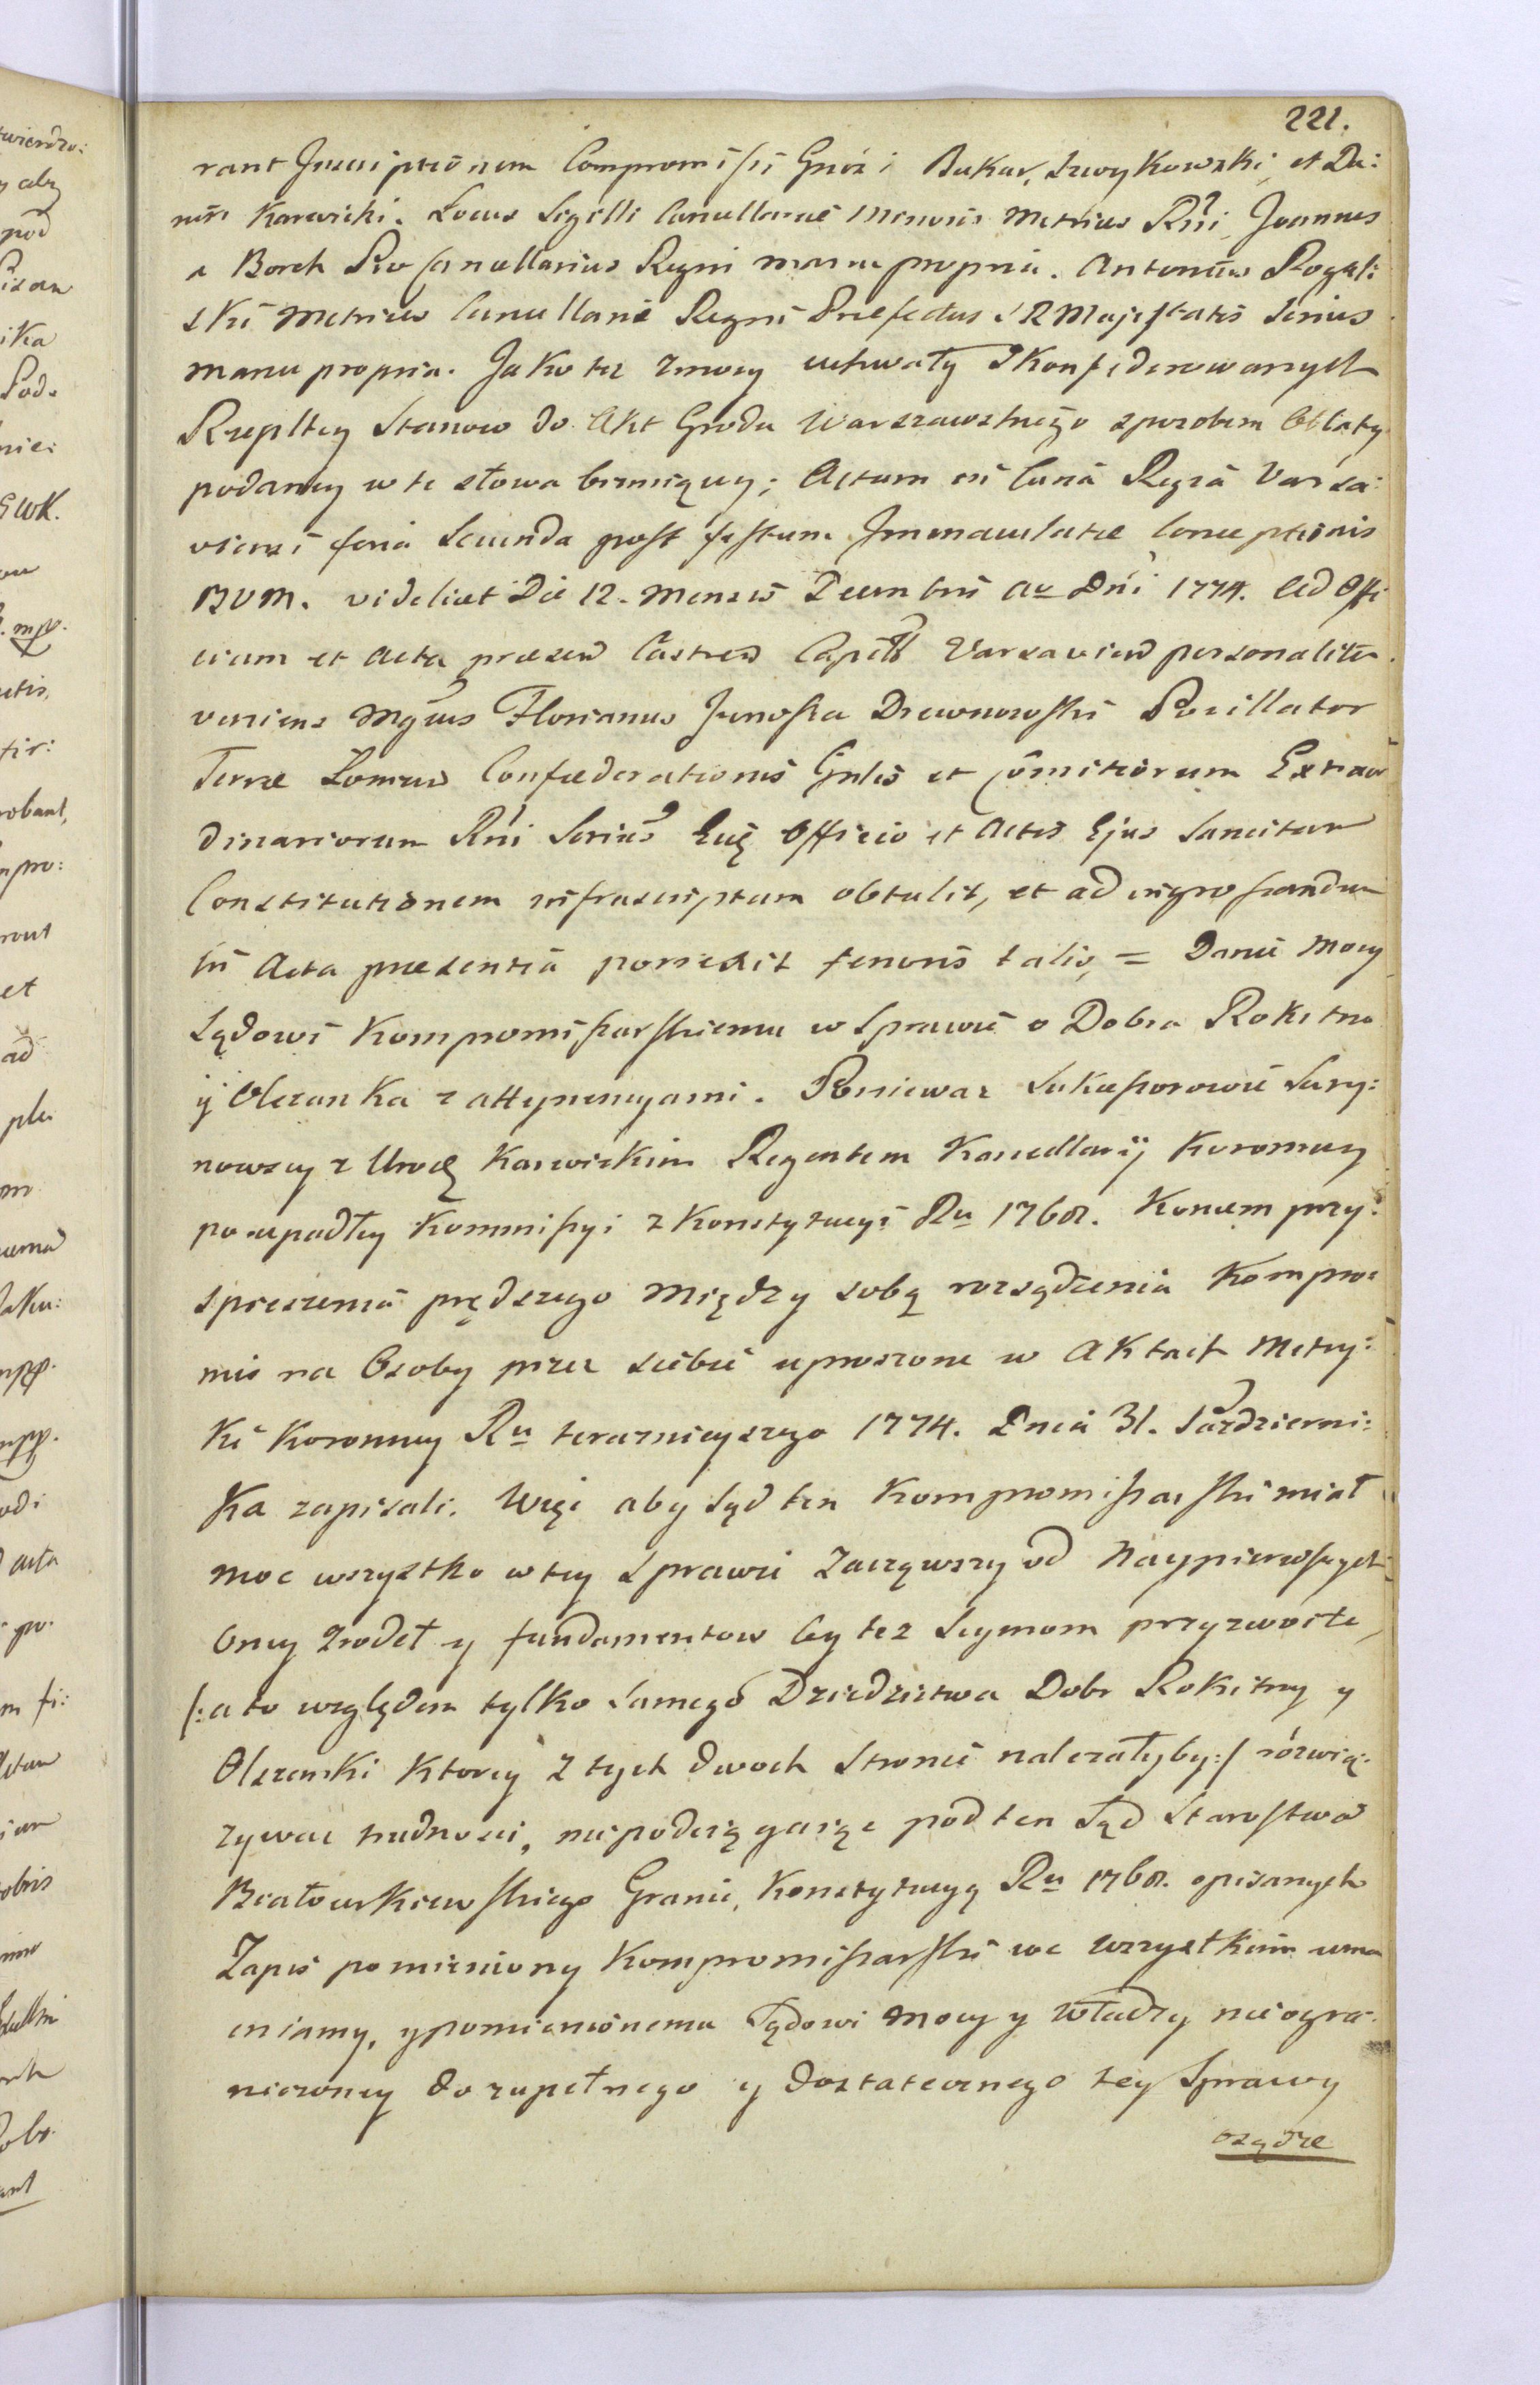 221.
rant Inscriptionem Compromissi Gnosi Bukar, Szwykowski, et Da:
nm Karwicki. Locus Sigilli Cancellariae Minoris Metrices Rni, Joannes
a Borch Pro Cancellarius Regni manu propria. Antonius Rogali
ski Metrices Cancellariae Regni Praefectus S R Majestatis Srius
manu propria. Jako tez zmocy uchwały Skonfederowanych
Rzepltey Stanow do Akt Grodu Warszawskiego sposobem Oblaty
podaney w te słowa brzmiącey; Actum in Curia Regia Varsa:
viensi feria Secunda post festum Immaculatae Conceptionis
BVM. videlicet Die 12. Mensis Decembris Ao Dni 1774. Ad Offi
cium et Acta praesen Castren Capitt Varsavien personaliter
veniens Mgcus Florianus Junosza Drewnowski Pocillator
Terrae Lomzen Confoederationis Gnlis et Comitiorum Extraor
dinariorum Rni Srius Eidę Officio et Actis Ejus Sancitam
Constitutionem infrascriptam obtulit, et ad ingrossandum
in Acta praesentia porrexit tenoris talis, = Danie Mocy
Sądowi Kompromissarskiemu w Sprawie o Dobra Rokitna
y Olszanka z attynencyami. Poniewaz Sukcessorowie Sury:
nowscy z Urodz Karwickim Regentem Kancellaryi Koronney
po upadłey Kommissyi z Konstytucyi Ru 1768. Koncem przy:
spieszenia prędszego między sobą rozsądzenia Kompro:
mis na Osoby przez siebie uproszone w Aktach Metry:
ki Koronney Ru teraznieyszego 1774. Dnia 31. Pazdzierni:
ka zapisali. Więc aby Sąd ten Kompromissarski miał
moc wszystko w tey Sprawie Zacząwszy od Naypierwszych
Oney Zrodeł y fundamentow by tez Seymom przyzwoite,
/: a to względem tylko samego Dziedzictwa Dobr Rokitny y
Olszanki Ktorey z tych dwoch Stronie nalezałyby :/ rozwią:
zywac trudnosci, niepodciągaiąc pod ten Sąd Starostwa
Białocerkiewskiego Granic, Konstytucyą Ru 1768. opisanych
Zapis pomieniony Kompromissarski we wszystkim umac
eniamy, y pomienionemu Sądowi mocy y Władzy nieogra:
niczoney do zupełnego y dostatecznego tey Sprawy
osądze